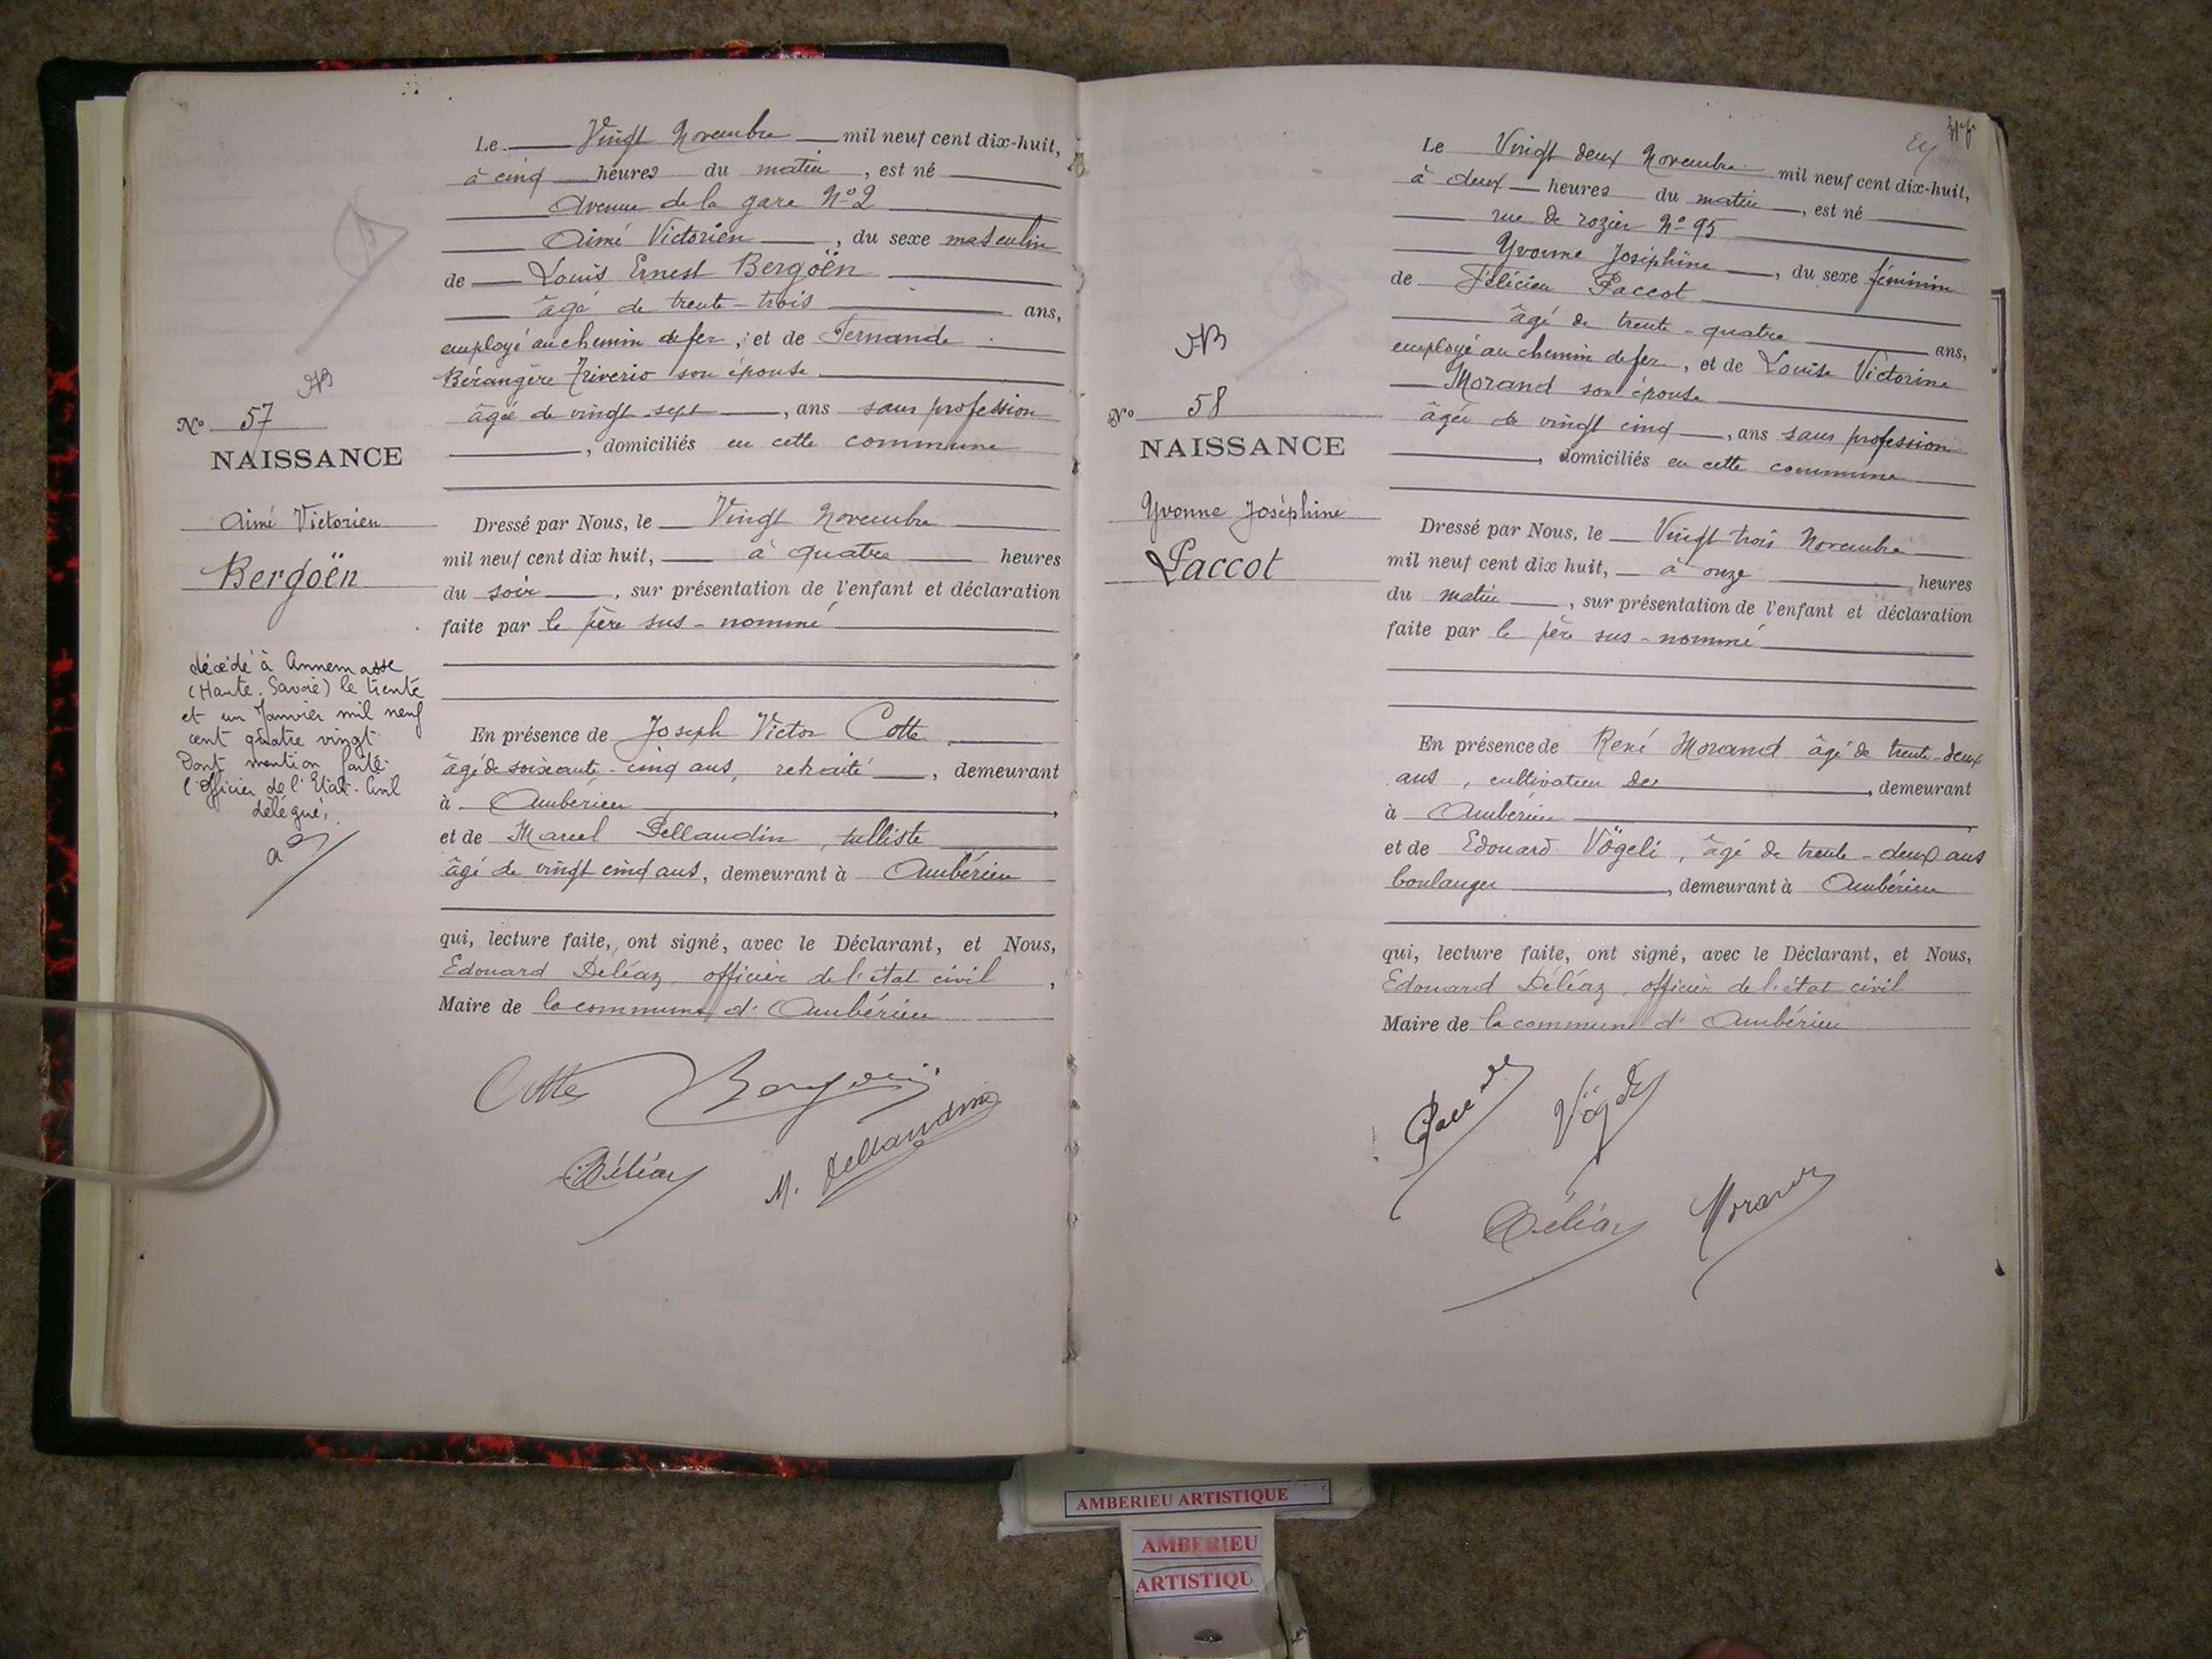 Le Vingt Novembre mil neuf cent dix-huit,
à cinq heures du matin, est né
Avenue de la gare No 2
Aimé Victorien, du sexe masculin
de Louis Ernest Bergoën
âgé de trente-trois ans,
employé au chemin de fer, et de Fernande
Bérangère Triverio son épouse
âgée de vingt-sept, ans sans profession
, domiciliés en cette commune
No 57
NAISSANCE
Aimé Victorien
Bergoën
décédé à Annemasse
(Haute-Savoie) le trente
et un Janvier mil neuf
cent quatre vingt
Dont mention faite
l'Officier de l'Etat-Civil
délégué,
Dressé par Nous, le Vingt Novembre
mil neuf cent dix huit, à quatre heures
du soir, sur présentation de l'enfant et déclaration
faite par le père sus-nommé
En présence de Joseph Victor Cotte
âgé de soixante-cinq ans, retraité, demeurant
à Ambérieu
et de Marcel Pellaudin, tulliste
âgé de vingt cinq ans, demeurant à Ambérieu
qui, lecture faite, ont signé, avec le Déclarant, et Nous,
Edouard Déléaz, officier de l'état civil,
Maire de la commune d'Ambérieu
Cotte Bergoën
Déléaz M. Pellaudin
Le Vingt deux Novembre mil neuf cent dix-huit,
à deux heures du matin, est né
rue de rozier No 95
Yvonne Joséphine, du sexe féminin
de Félicien Paccot
âgé de trente-quatre ans,
employé au chemin de fer, et de Louise Victorine
Morand son épouse
âgée de vingt cinq, ans sans profession
, domiciliés en cette commune
No 58
NAISSANCE
Yvonne Joséphine
Paccot
Dressé par Nous, le Vingt trois Novembre
mil neuf cent dix huit, à onze heures
du matin, sur présentation de l'enfant et déclaration
faite par le père sus-nommé
En présence de René Morand âgé de trente-deux
ans, cultivateur, demeurant
à Ambérieu
et de Edouard Vögeli, âgé de trente-deux ans
boulanger, demeurant à Ambérieu
qui, lecture faite, ont signé, avec le Déclarant, et Nous,
Edouard Déléaz, officier de l'état civil
Maire de la commune d'Ambérieu
Paccot Vögeli
Déléaz Morand
AMBERIEU ARTISTIQUE
AMBERIEU
ARTISTIQU